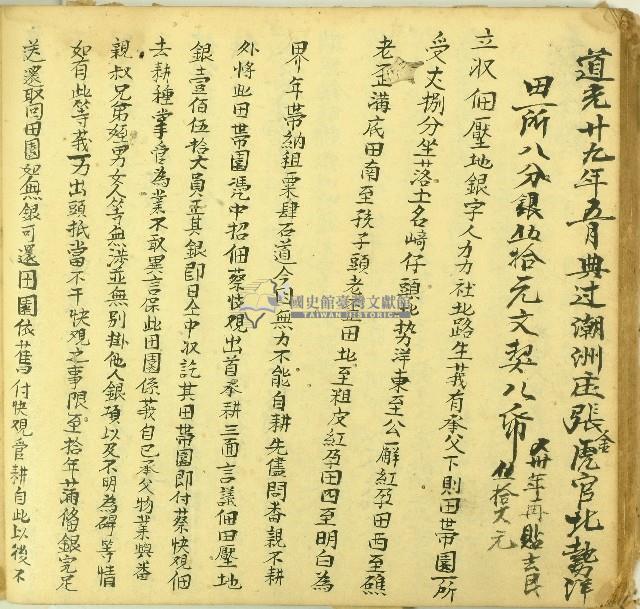 道光廿九年五月典过潮洲庄張金虎官北勢洋
田一所八分銀伍拾元文契八希
又卅年再貼去艮
伍拾大元
立収佃壓地銀字人力力社北路生莪有承父下則田帶園一所
受丈捌分坐落土名崎仔頭北势洋東至公廨紅孕田西至礁
老歪溝底田南至孩子頭老歪田北至粗皮紅孕田四至明白為
界年帶納租粟肆石道今因無力不能自耕先儘問番親不耕
外將此田帶園憑中招佃蔡快覌出首承耕三面言議佃田壓地
銀壹佰伍拾大員正其銀即日仝中収訖其田帶園即付蔡快覌佃
去耕種掌管為業不敢異言保此田園係莪自己承父物業與番
親叔兄弟姪男女人等無涉並無別掛他人銀碩以及不明為碍等情
如有此等莪一力出頭抵當不干快覌之事限至拾年滿俻銀完足
送還取回田園如無銀可還田園依舊付快覌管耕自此以後不
國史館臺灣文獻館
TAIWAN HISTORIC